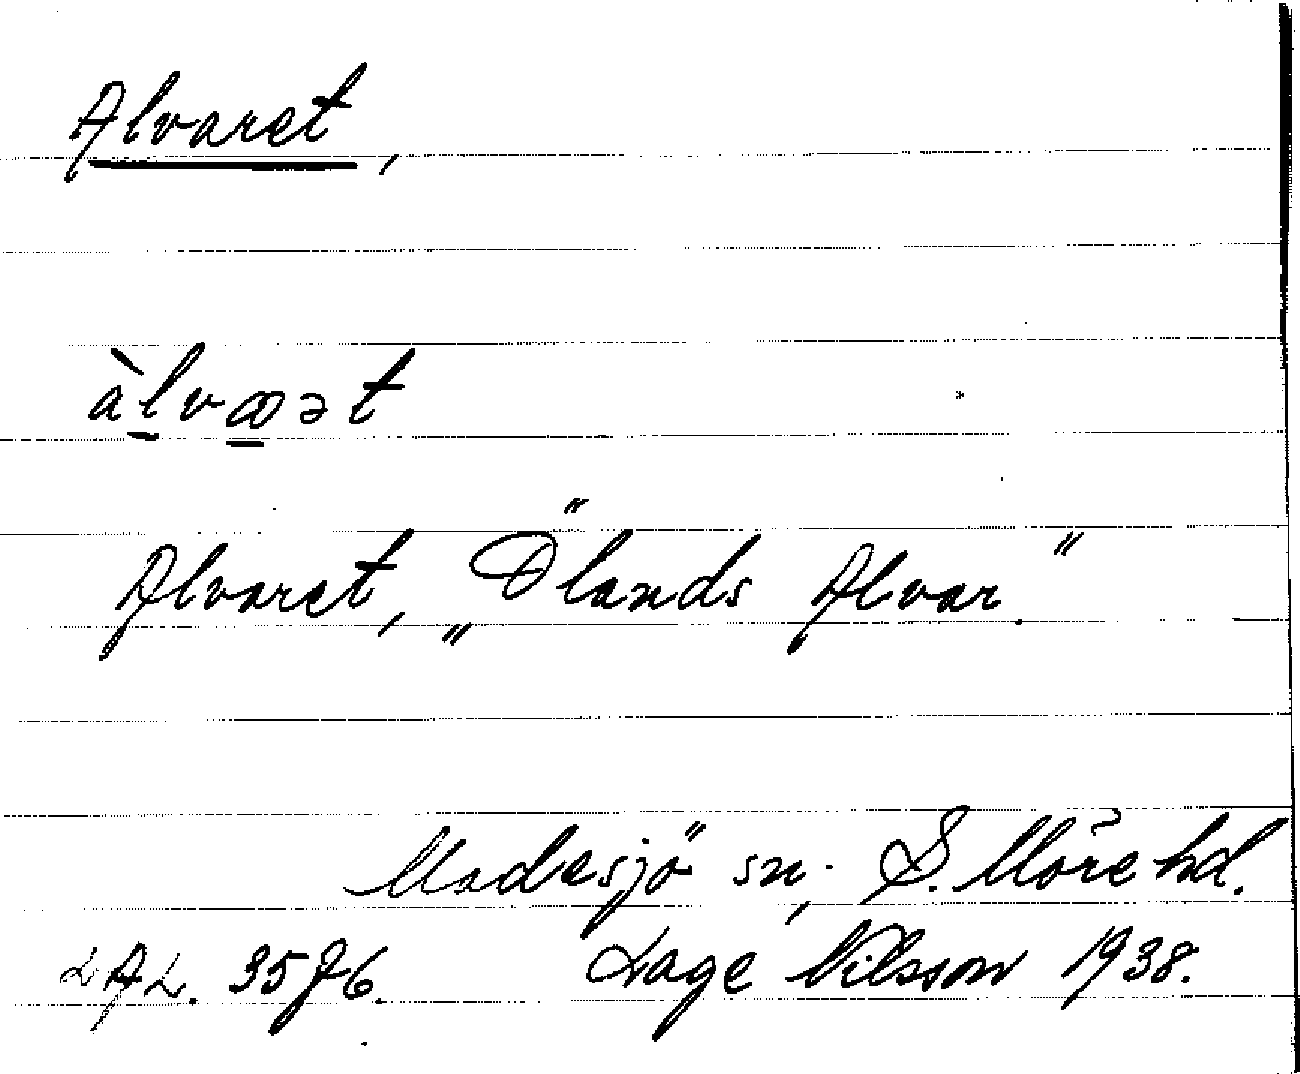 Alvaret,
àlvaət
Alvaret, „Ölands Alvar.”
Madesjö sn; S. Möre hd.
LAL. 3576. Lage Nilsson 1938.